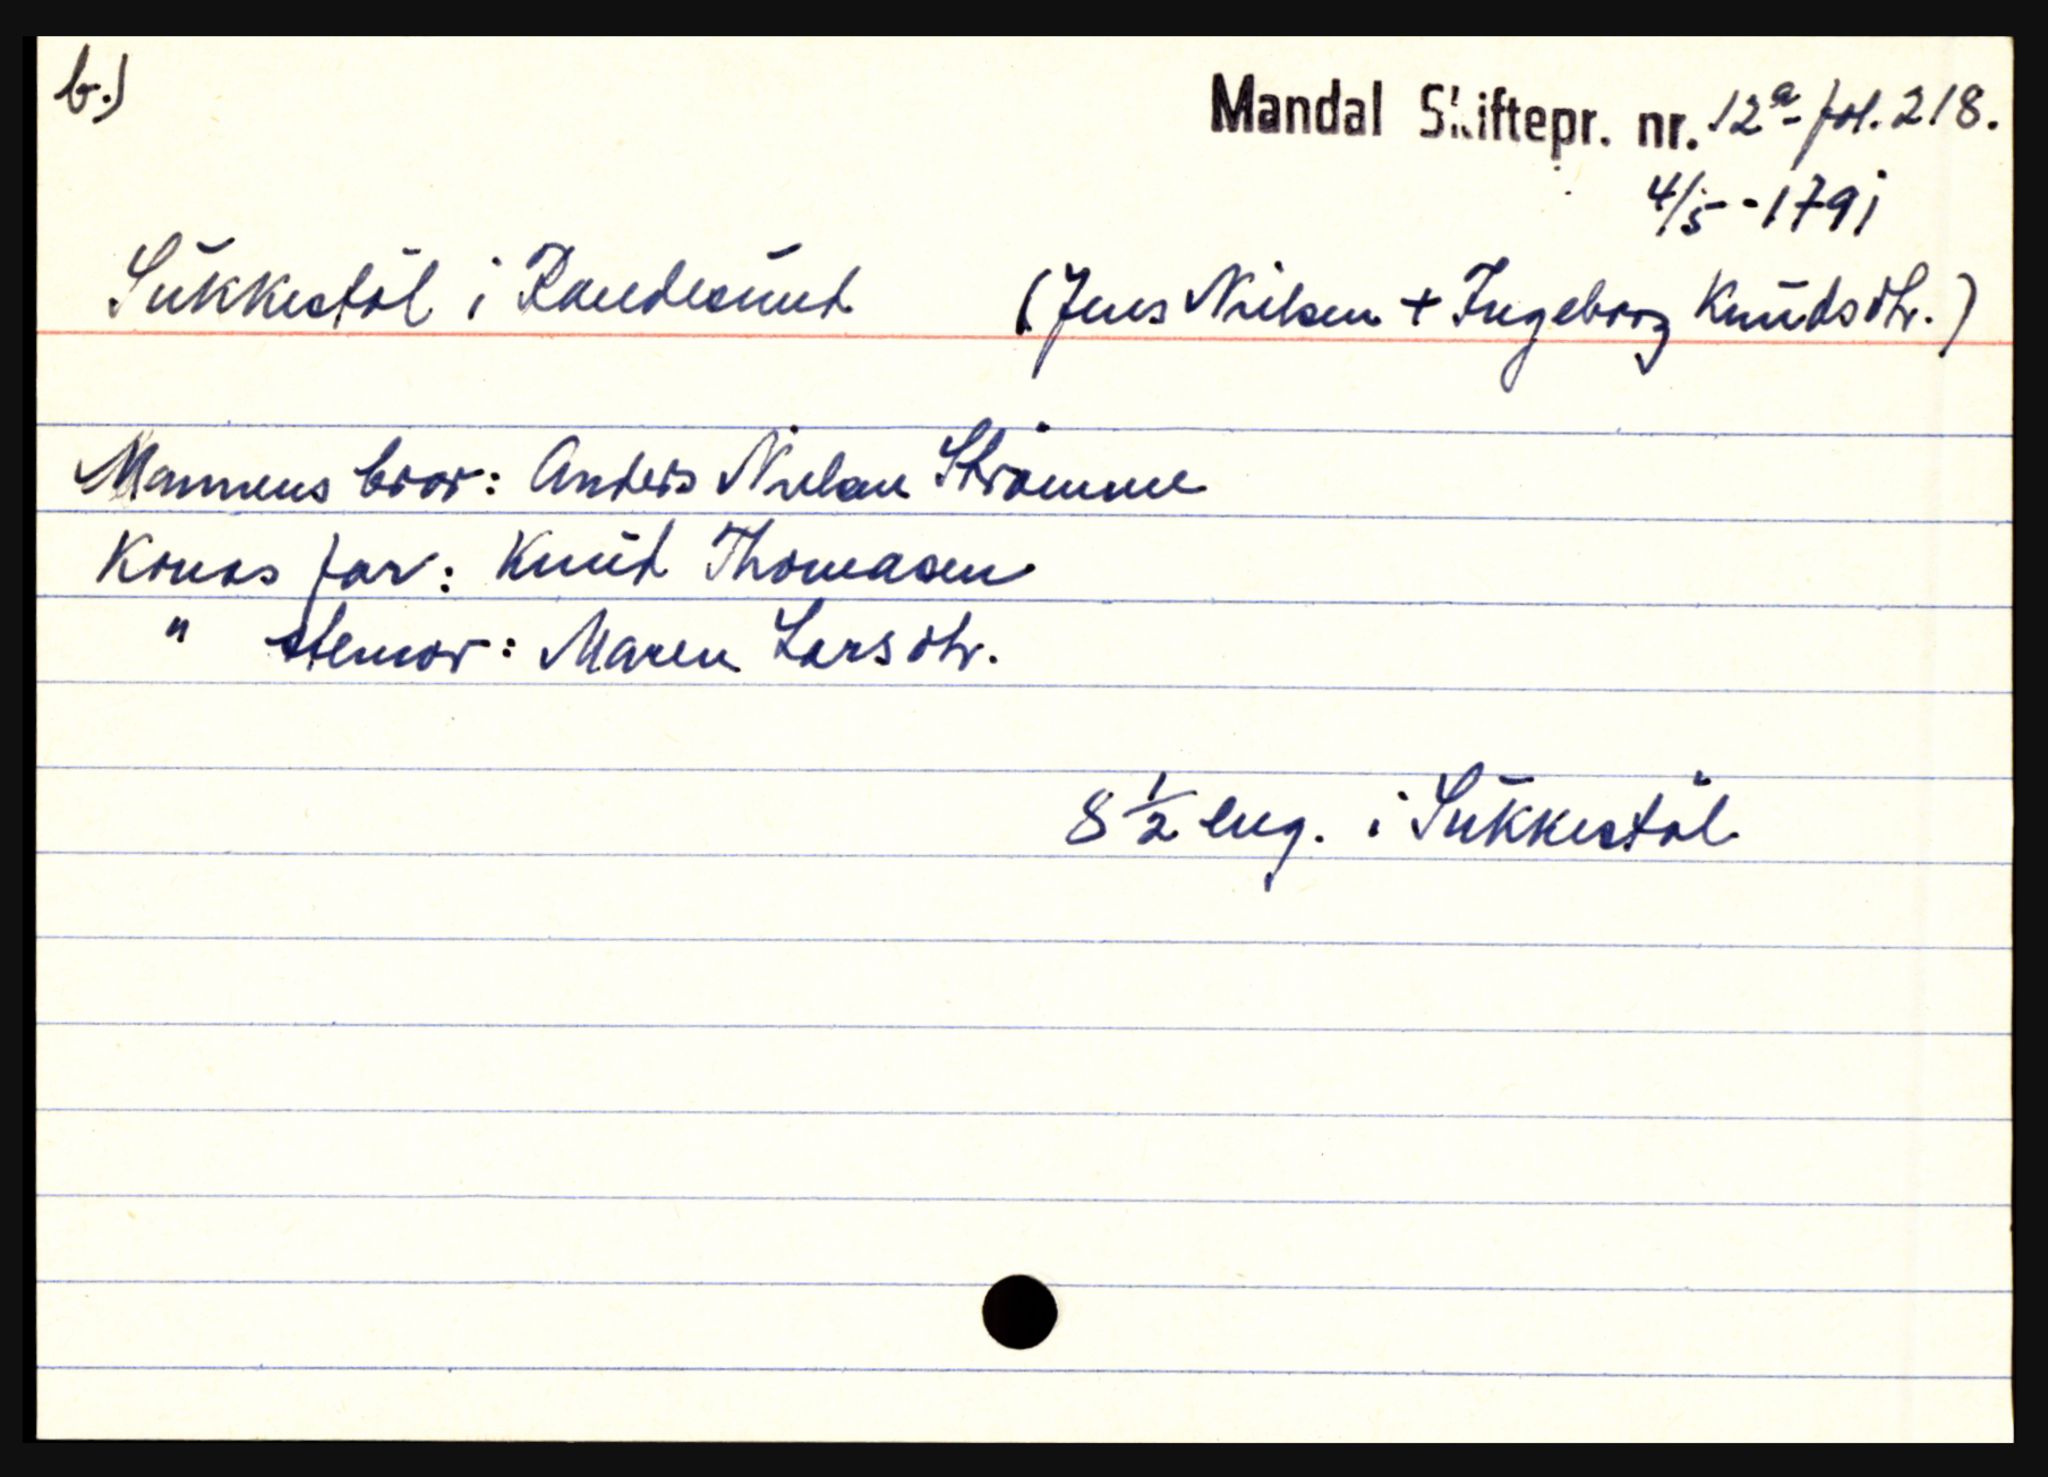 b.)
Mandal Skiftepr. nr. 12a fol. 218.
4/5-1791
Sukkestøl i Randesund (Jens Nielsen + Ingeborg Knudsdtr.)
Mannens bror: Anders Nielsen Strømme
Konas far: Knud Thomasen
" stemor: Maren Larsdtr.
8 1/2 eng. i Sukkestøl